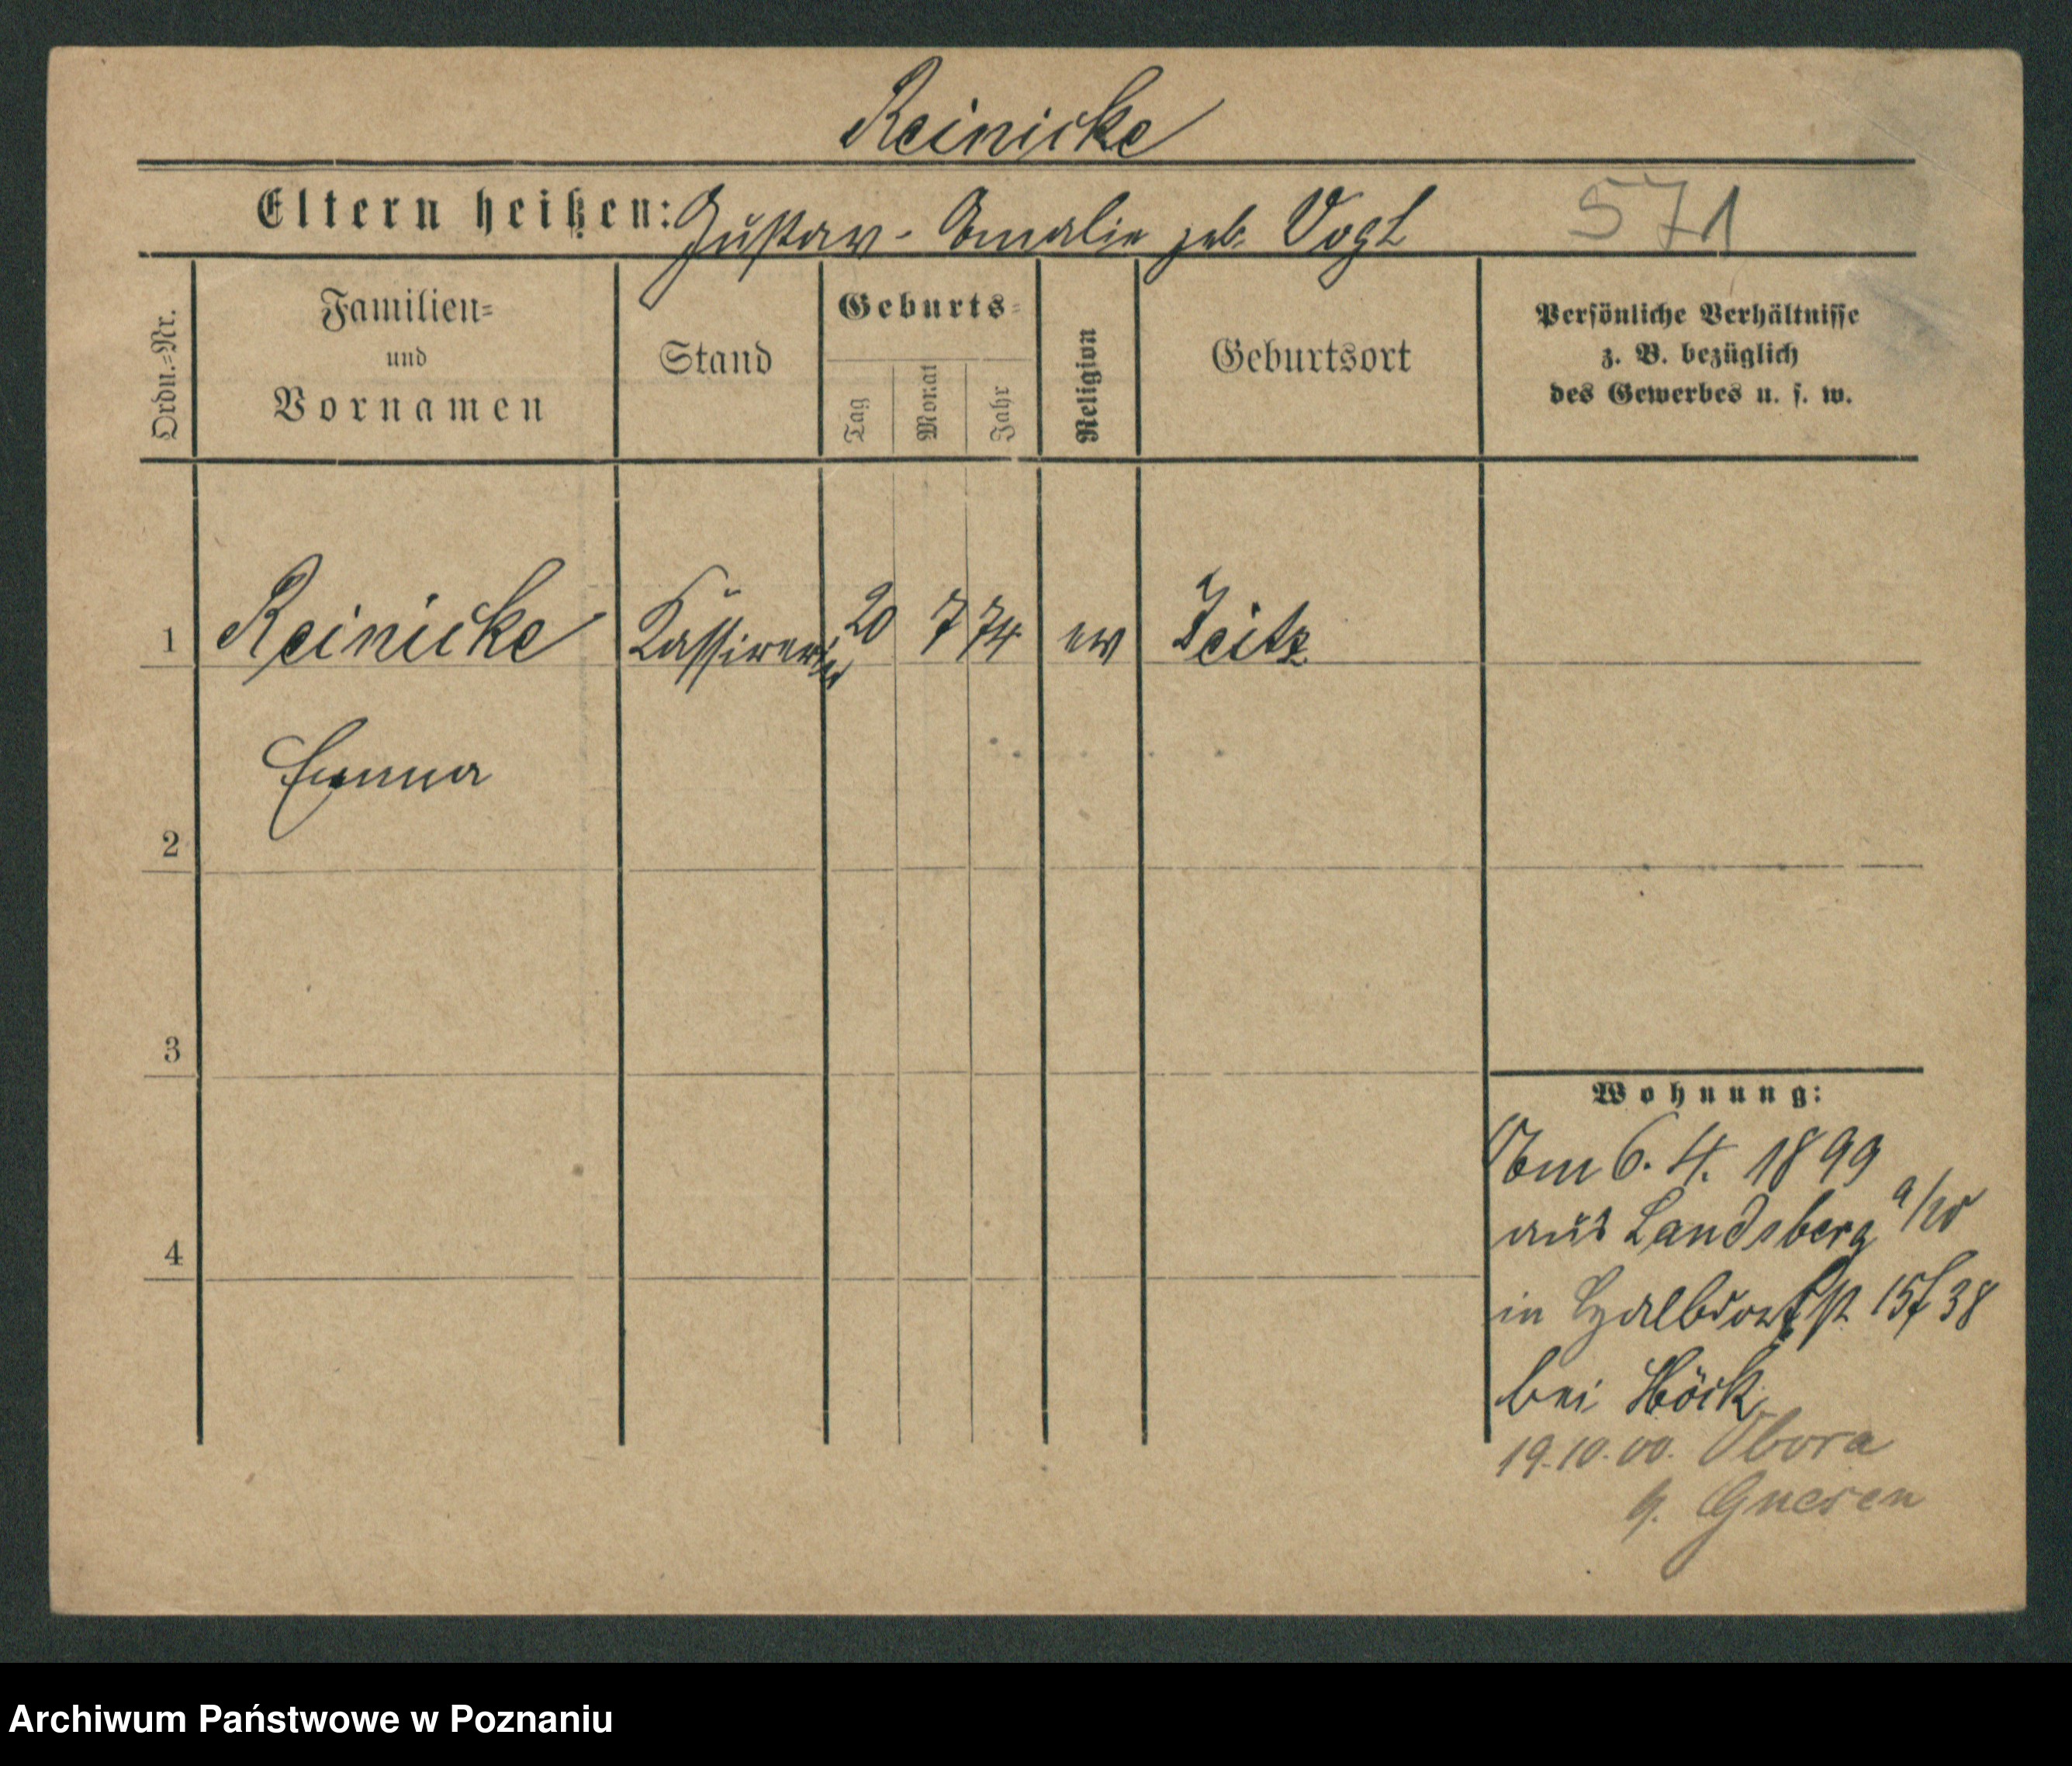 Reinicke
Eltern heißen: Gustav - Amalie geb. Vogt 571
Ordn.=Nr.
Familien=
und
Vornamen
Stand
Geburts=
Tag
Monat
Jahr
Religion
Geburtsort
Persönliche Verhältnisse
z. B. bezüglich
des Gewerbes u. s. w.
1 Reinicke Kassirerin 20 7 74 ev Zeitz
Emma
2
3
4
Wohnung:
Am 6. 4. 1899
aus Landsberg a/W
in Halbdorfst 15/38
bei Höck
19.10.00. Obora
b. Gnesen
Archiwum Państwowe w Poznaniu